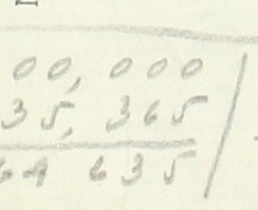 00,000
35,365
64 635